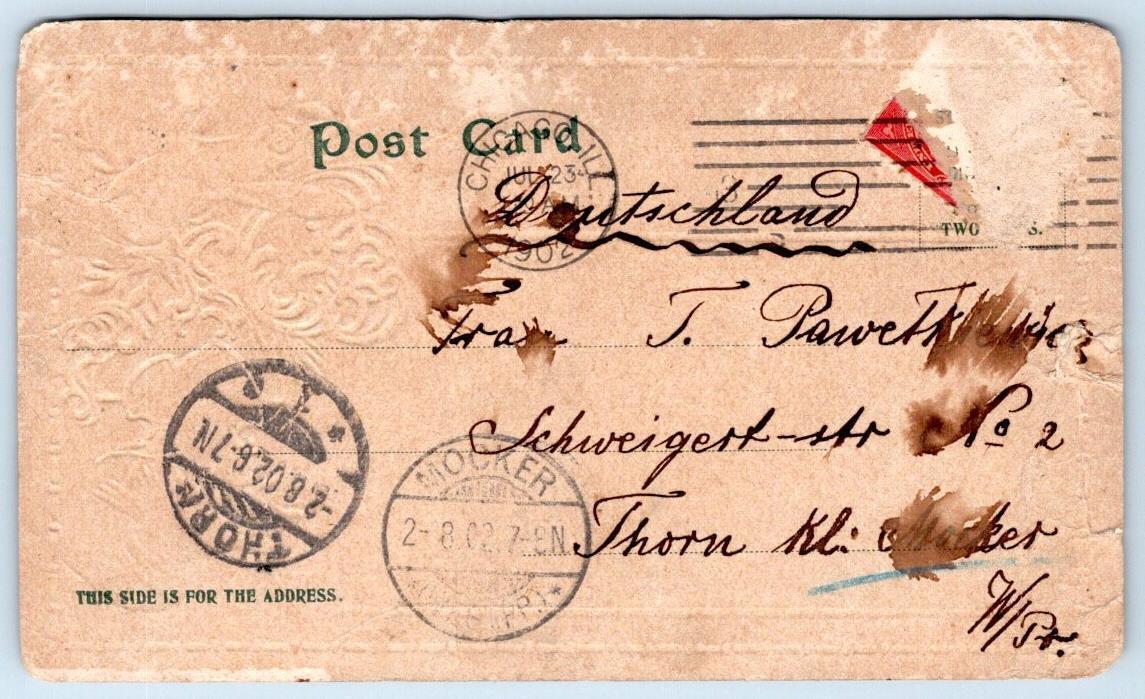 Post Card
CHICAGO, ILL.
JUL 23
AM
1902
TWO S.
Deutschland
Frau T.
Schweigert-str No 2
Thorn Kl: Mocker
W/Pr.
THORN
-2.8.02.6-7N
MOCKER
2-8.02.7-8N
THIS SIDE IS FOR THE ADDRESS.